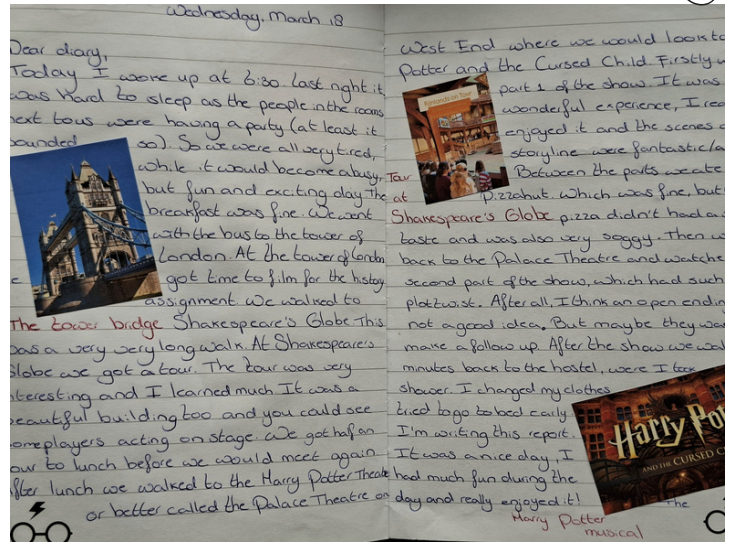 Wednesday, March 18
Dear diary,
Today I woke up at 6:30 last night it
was hard to sleep as the people in the rooms
next to us were having a party (at least it
sounded so). So we were all very tired,
while it would become a busy,
but fun and exciting day. The
breakfast was fine. We went
with the bus to the tower of
London. At the tower of London
e got time to film for the history
assignment we walked to
The tower bridge
Shakespeare's Globe. This
was a very very long walk. At Shakespeare's
Globe we got a tour. The tour was very
nteresting and I learned much It was a
eautiful building too and you could see
ome players acting on stage. We got haf an
our to lunch before we would meet again.
After lunch we walked to the Harry Potter Theate
or better called the Palace Theatre on
West End where we would look to
Potter and the Cursed Child. Firstly w
part 1 of the show. It was
wonderful experience, I rea
enjoyed it and the scenes a
storyline were fantastic/a
Between the parts we ate
pizzahut. Which was fine, but
Tour
at
Shakespeare's Globe
pizza didn't had a
taste and was also very soggy. Then w
back to the Palace Theatre and watche
second part of the show, which had such
plottwist. After all, I think an open endin
not a good idea. But maybe they wa
make a follow up. After the show we wal
minutes back to the hostel, were I took
shower. I changed my clothes
tried to go to bed early
I'm writing this report.
It was a nice day, I
had much fun during the
day and really enjoyed it!
Harry Pot
AND THE CURSED C
The
Harry Potter
musical